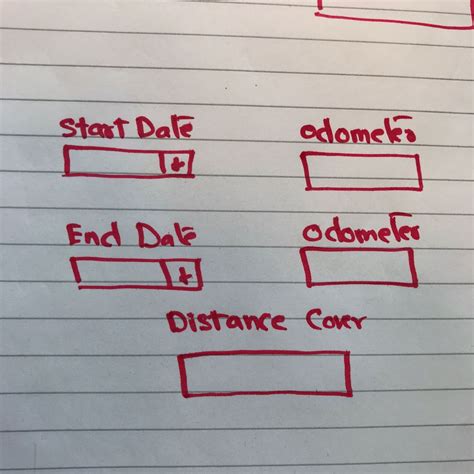 Start Date odometer
End Date odometer
Distance Cover